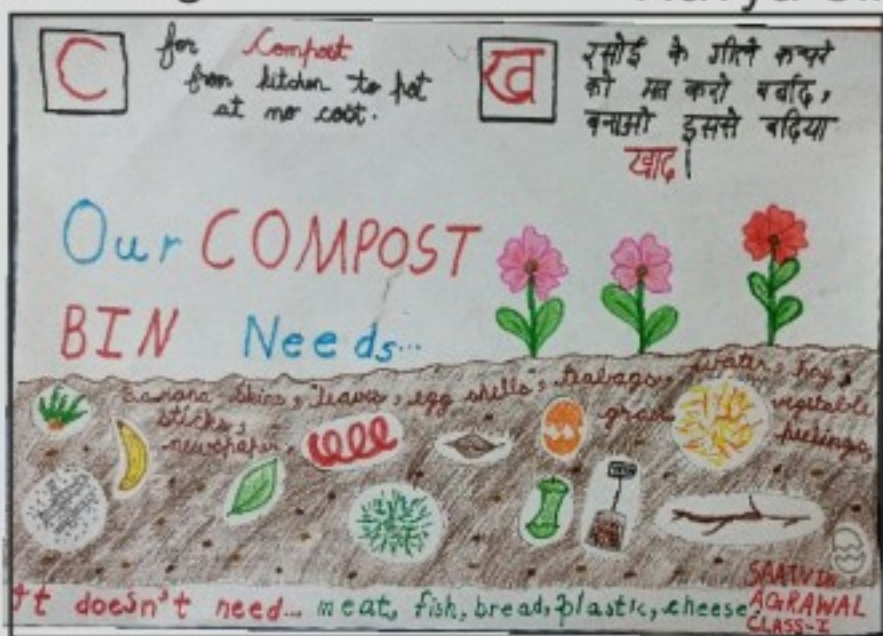 C for Compost
from kitchen to pot
at no cost.
ख रसोई के गीले कचरे
को मत करो बर्बाद,
बनाओ इससे बढ़िया
खाद।
Our COMPOST
BIN Needs...
banana skins, leaves, egg shells, teabags, water, hay,
sticks, grass vegetable
newspaper, peelings,
It doesn't need... meat, fish, bread, plastic, cheese
AGRAWAL
CLASS-I